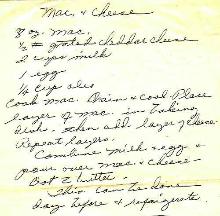 Mac. & Cheese
8 oz. Mac.
1/2 # grated cheddar cheese
2 cups milk
1 egg
1/4 cup oleo
Cook Mac. Drain & cool. Place
layer of mac. in baking
dish. then add layer of cheese.
Repeat layers.
Combine milk & egg &
pour over mac. & cheese.
Dot & butter.
This can be done
day before & refrigerate.